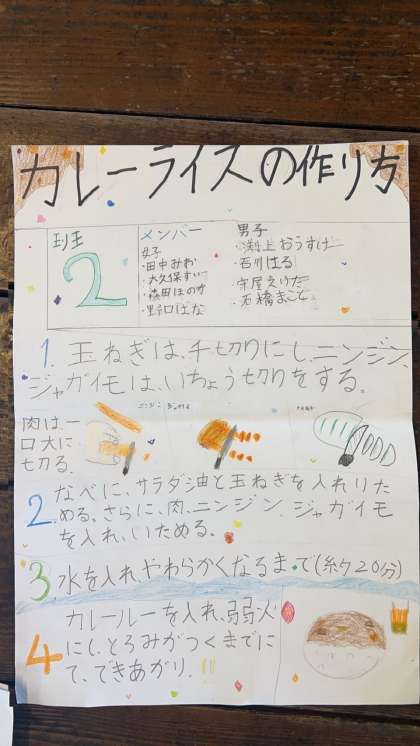 カレーライスの作り方
班
2
メンバー
女子
・田中みお
・大久保すい
・森田ほのか
・野口はな
男子
・渕上おうすけ
・石川はる
・守屋えいた
・石橋まこと
1. 玉ねぎは、千切りにし、ニンジン、
ジャガイモは、いちょう切りをする。
肉は、一
口大に
切る。
2 なべに、サラダ油と玉ねぎを入れいた
める。さらに、肉、ニンジン、ジャガイモ
を入れ、いためる。
3 水を入れ、やわらかくなるまで(約20分)
4 カレールーを入れ、弱火
にし、とろみがつくまでに
て、できあがり。!!